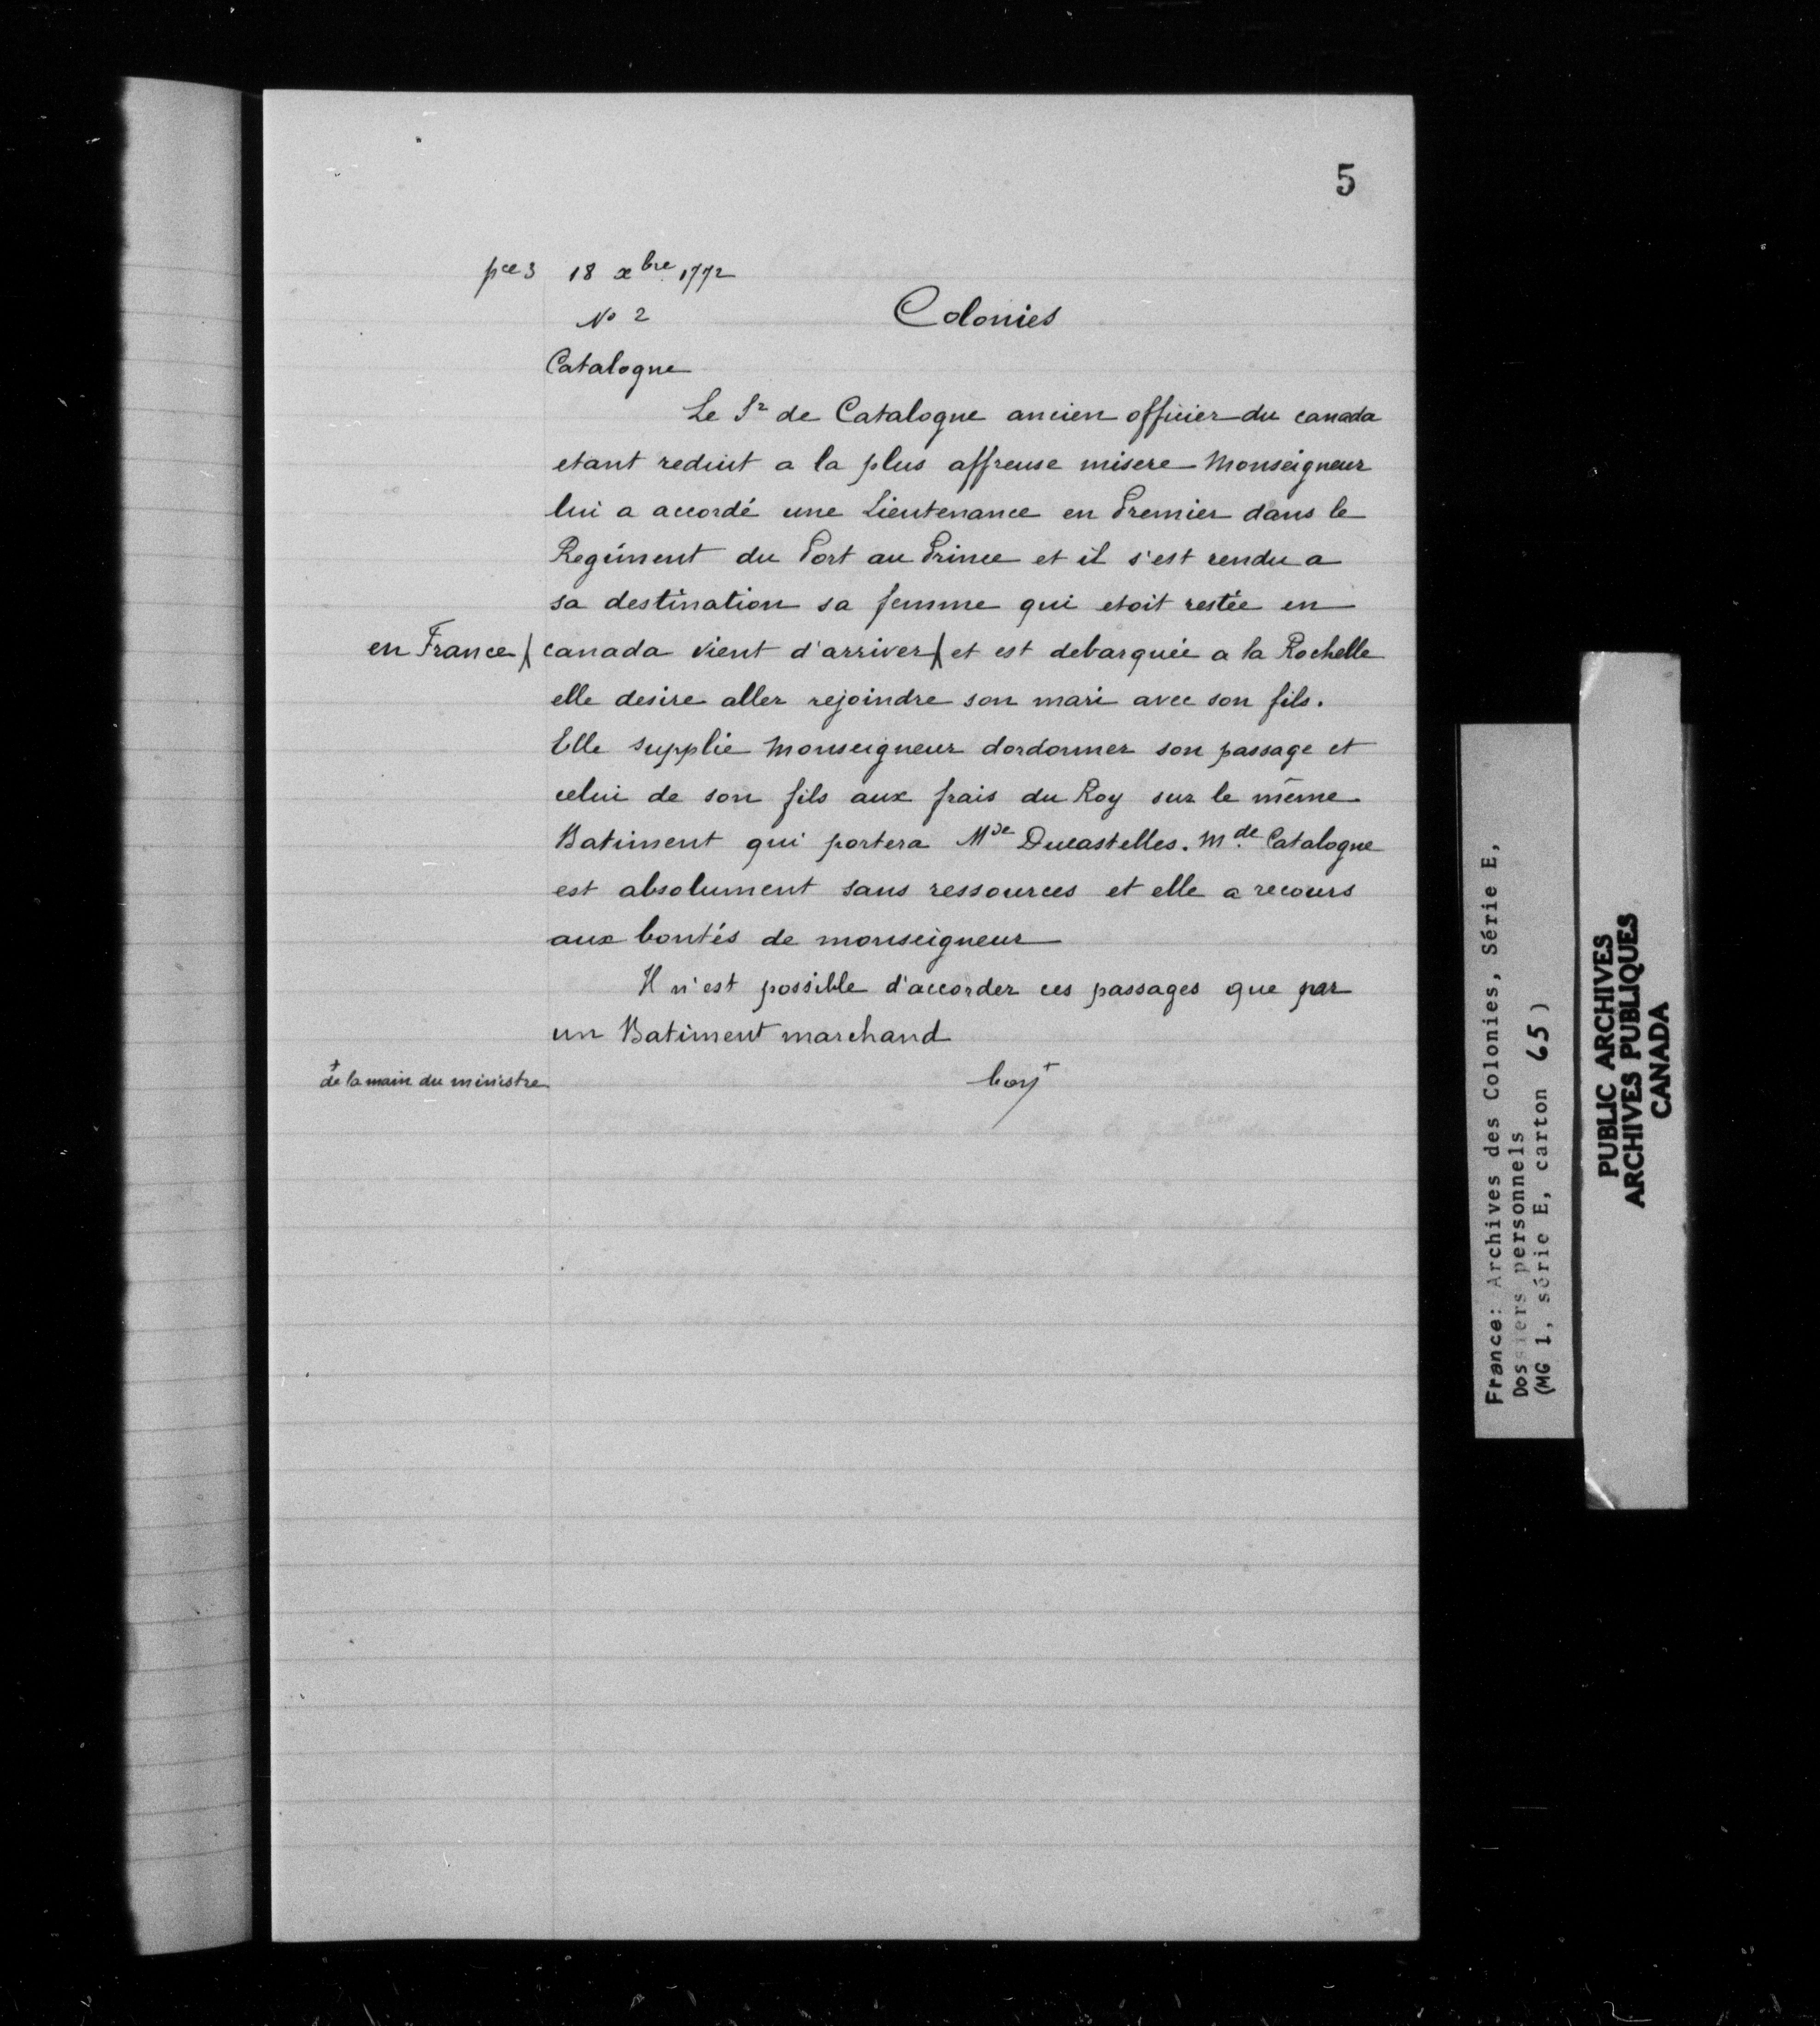 5
pce 3 18 xbre 1772
No 2 Colonies
Catalogne
Le Sr de Catalogne ancien officier du canada
etant reduit a la plus affreuse misere Monseigneur
lui a accordé une Lieutenance en Premier dans le
Regiment du Port au Prince et il s'est rendu a
sa destination sa femme qui etoit restée en
en France / canada vient d'arriver / et est debarquée a la Rochelle
elle desire aller rejoindre son mari avec son fils.
Elle supplie Monseigneur dordonner son passage et
celui de son fils aux frais du Roy sur le même
Batiment qui portera Mde Ducastelles. Mde Catalogne
est absolument sans ressources et elle a recours
aux bontés de monseigneur
Il n'est possible d'accorder ces passages que par
un Batiment marchand
+ de la main du ministre bon +
France: Archives des Colonies, Série E,
Dossiers personnels
(MG 1, série E, carton 65)
PUBLIC ARCHIVES
ARCHIVES PUBLIQUES
CANADA